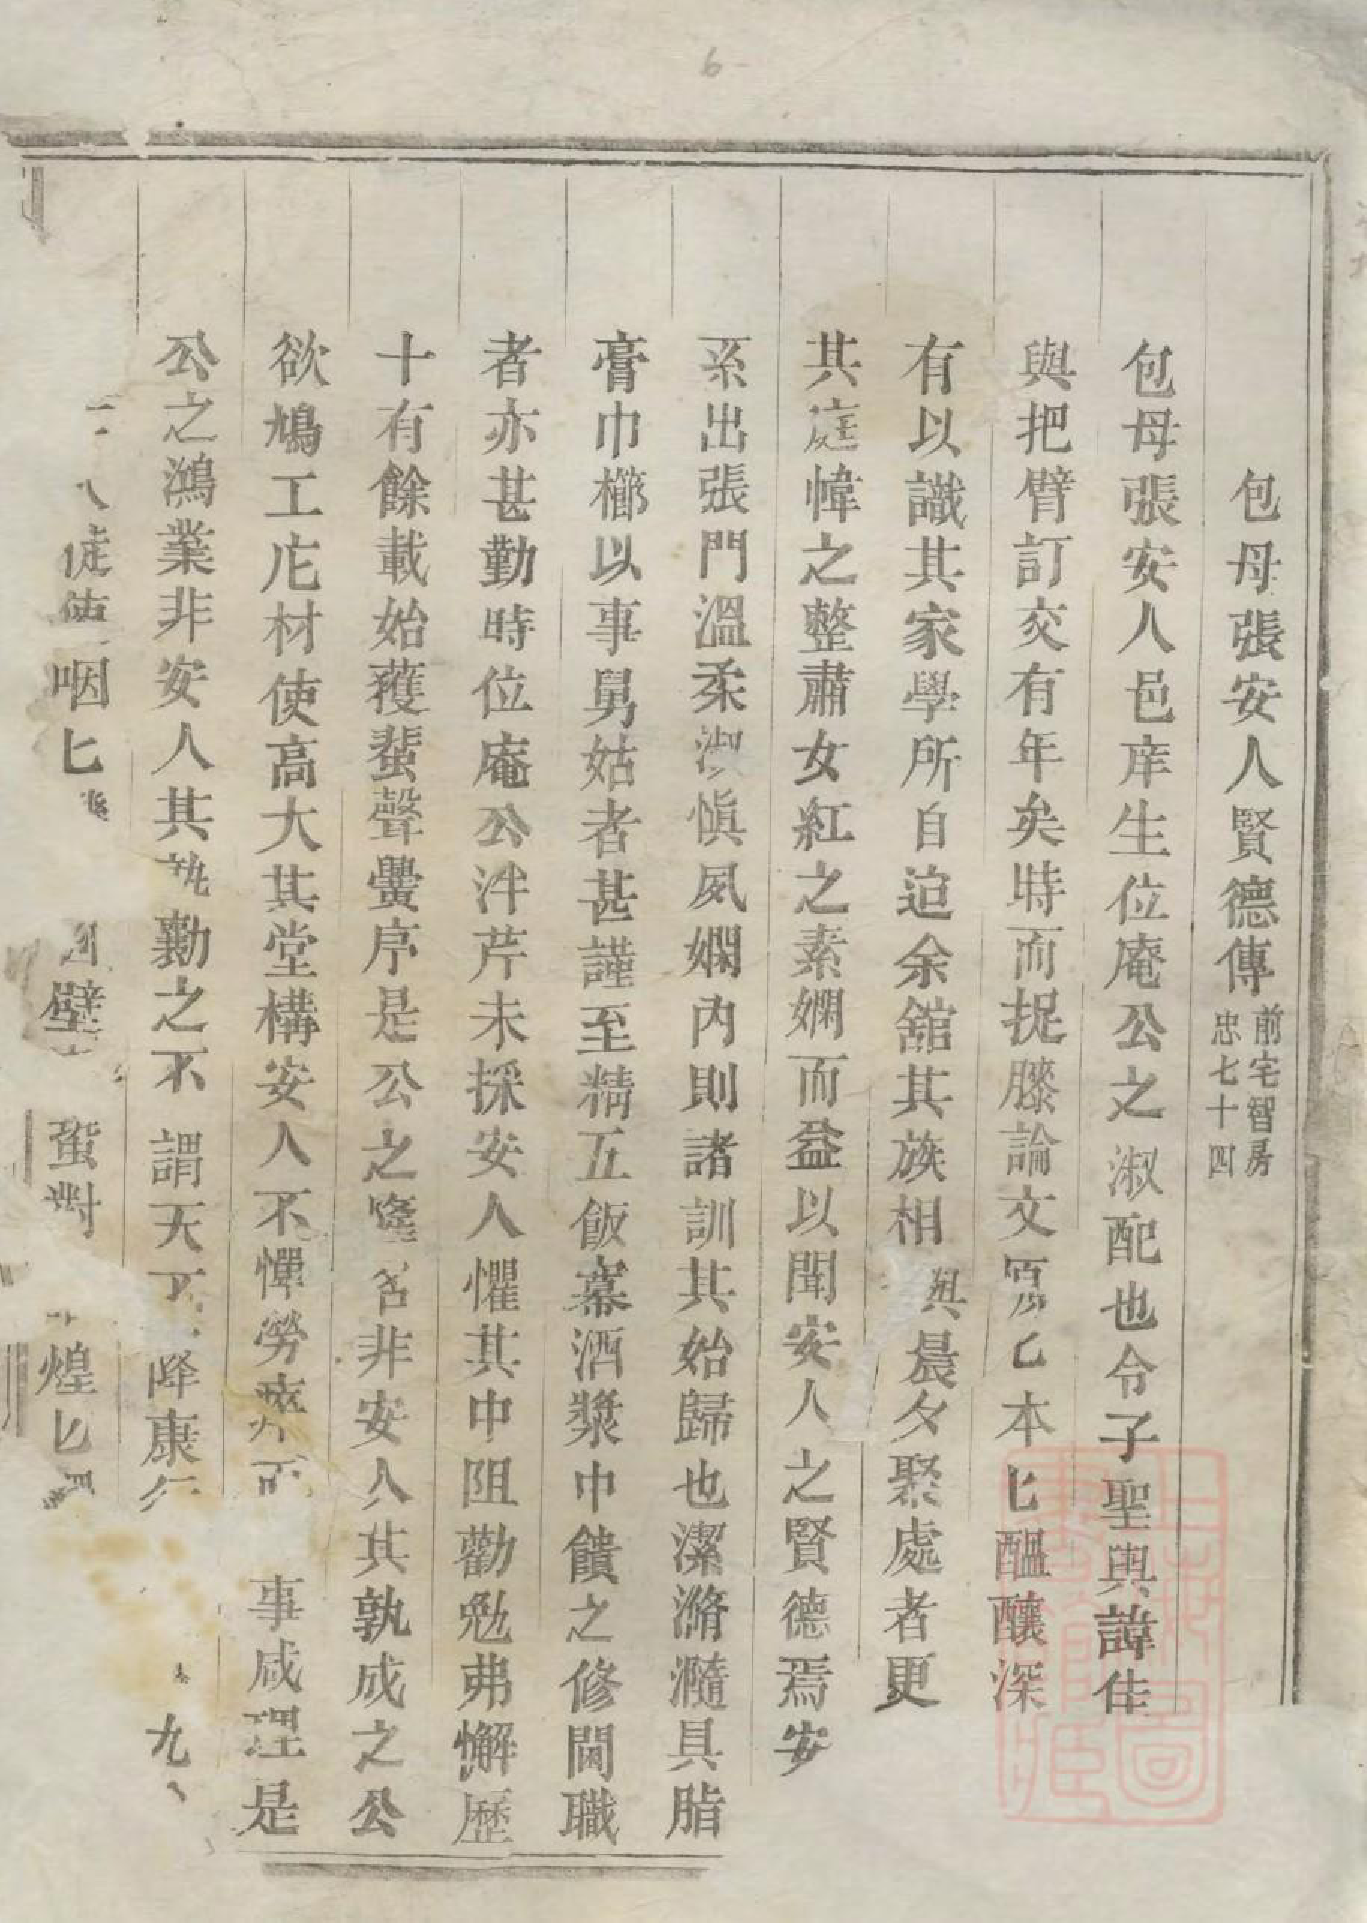 6
包母張安人賢德傳 前宅智房
忠七十四
包母張安人邑庠生位庵公之淑配也令子聖與諱佳
與把臂訂交有年矣時而捉膝論文冩心本心醞釀深
有以識其家學所自迨余舘其族相與晨夕聚處者更
其庭幃之整肅女紅之素嫻而益以聞安人之賢德焉安
系出張門溫柔淑愼夙嫻內則諸訓其始歸也潔滫瀡具脂
膏巾櫛以事舅姑者甚謹至精五飯羃酒漿中饋之修閫職
者亦甚勤時位庵公泮芹未採安人懼其中阻勸勉弗懈歷
十有餘載始蜚聲黌序是公之隆名非安人其孰成之公
欲鳩工庀材使高大其堂構安人不憚勞瘁而事咸理是
公之鴻業非安人其孰勷之不謂天不降康行九
徒使咽壁蛩對煌
上海圖書館藏